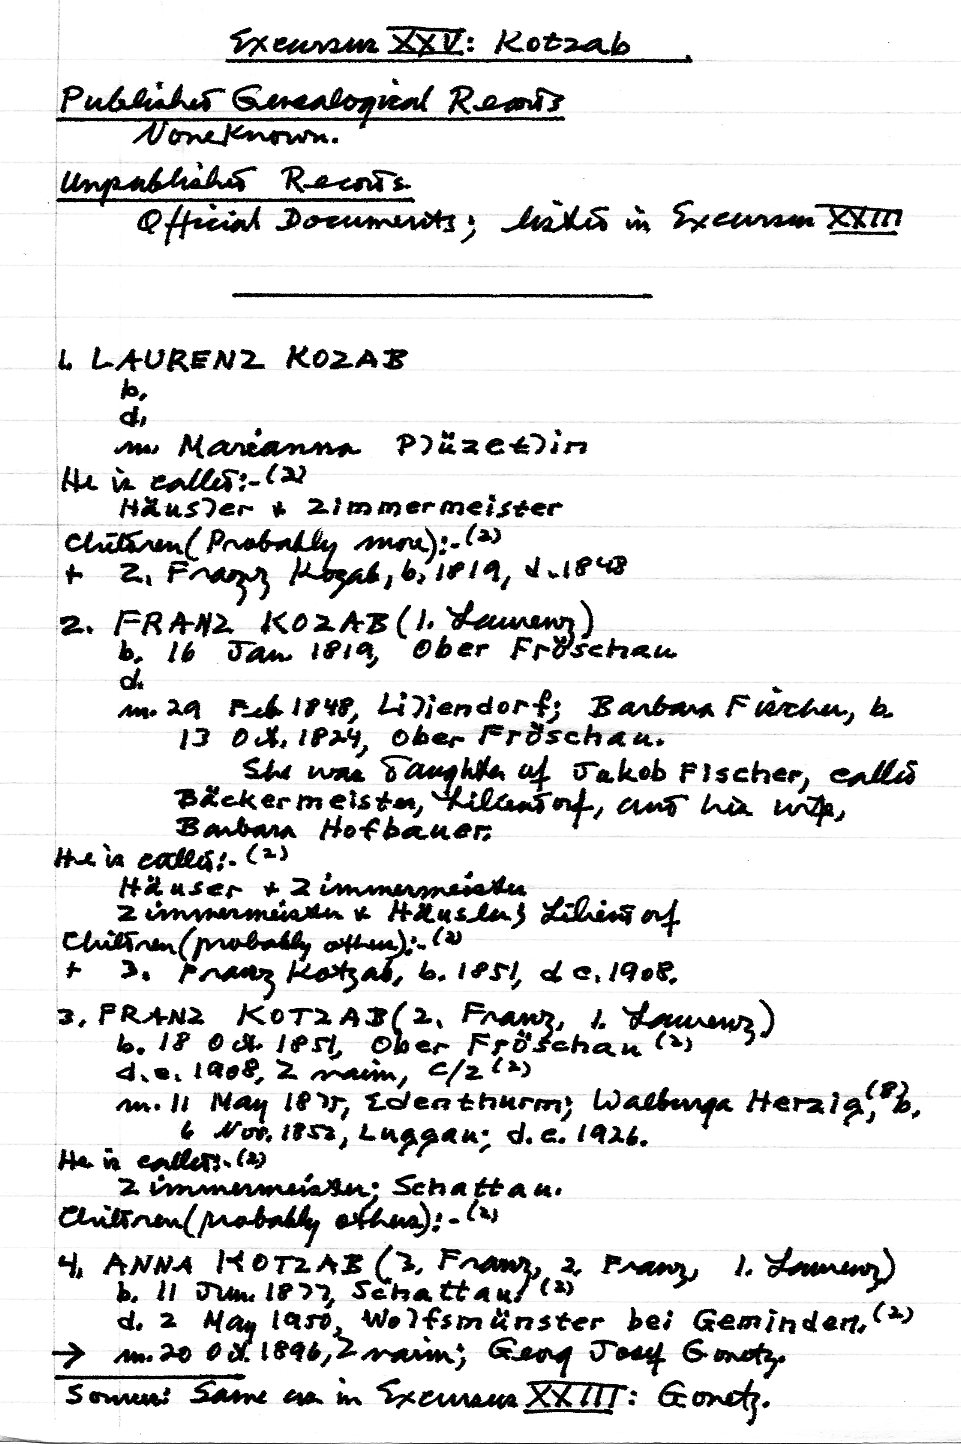 Excursus XXV: Kotzab
Published Genealogical Records
None Known.
Unpublished Records
Official Documents; listed in Excursus XXIII
1. LAURENZ KOZAB
b.
d.
m. Marianna Plüzetlin
He is called:-(2)
Häusler + Zimmermeister
Children (Probably more):-(2)
+ 2. Franz Kozab, b. 1819, d. 1848
2. FRANZ KOZAB (1. Laurenz)
b. 16 Jan. 1819, Ober Fröschau
d.
m. 29 Feb. 1848, Liliendorf; Barbara Fischer, b.
13 Oct. 1824, Ober Fröschau.
She was daughter of Jakob Fischer, called
Bäckermeister, Liliendorf, and his wife,
Barbara Hofbauer.
He is called:-(2)
Häuser + Zimmermeister
Zimmermeister + Häusler; Liliendorf
Children (probably others):-(2)
+ 3. Franz Kotzab, b. 1851, d c. 1908.
3. FRANZ KOTZAB (2. Franz, 1. Laurenz)
b. 18 Oct. 1851, Ober Fröschau (2)
d. c. 1908, Znaim, C/Z (2)
m. 11 May 1875, Edenthurm; Walburga Herzig,(8) b.
6 Nov. 1852, Luggau; d. c. 1926.
He is called:-(2)
Zimmermeister; Schattau.
Children (probably others):-(2)
4. ANNA KOTZAB (3. Franz, 2. Franz, 1. Laurenz)
b. 11 Jun. 1877, Schattau.(2)
d. 2 May 1950, Wolfsmünster bei Geminden.(2)
→ m. 20 Oct. 1896, Znaim; Georg Josef Gonetz.
Sources: Same as in Excursus XXIII: Gonetz.